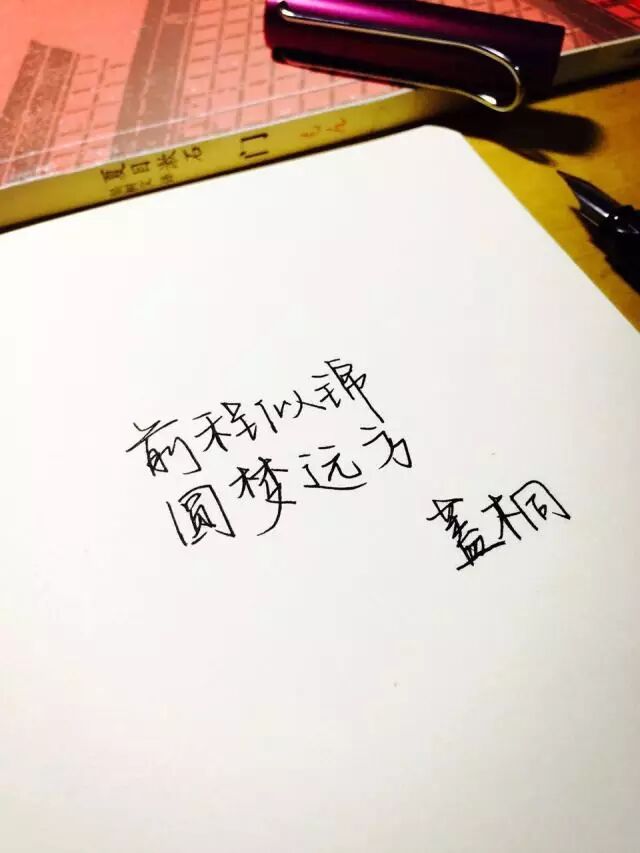 夏目漱石
门
前程似锦
圆梦远方
盖桐